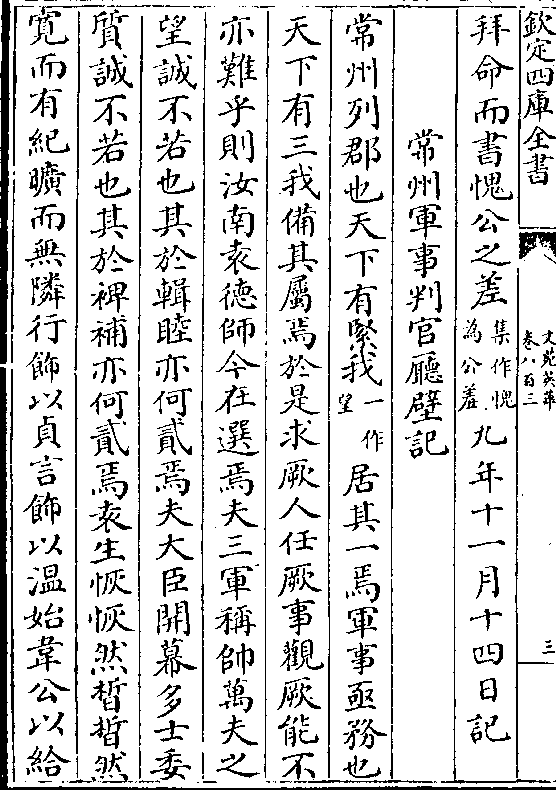 欽定四庫全書
文苑英華
卷八百三
三
拜命而書愧公之差集作愧為公羞九年十一月十四日記
常州軍事判官廳壁記
常州列郡也天下有緊我一作望居其一焉軍事亟務也
天下有三我備其屬焉於是求厥人任厥事觀厥能不
亦難乎則汝南袁德師今在選焉夫三軍稱帥萬夫之
望誠不若也其於輯睦亦何貳焉夫大臣開幕多士委
質誠不若也其於裨補亦何貳焉袁生恢恢然晳晳然
寛而有紀曠而無隣行飾以貞言飾以温始韋公以給